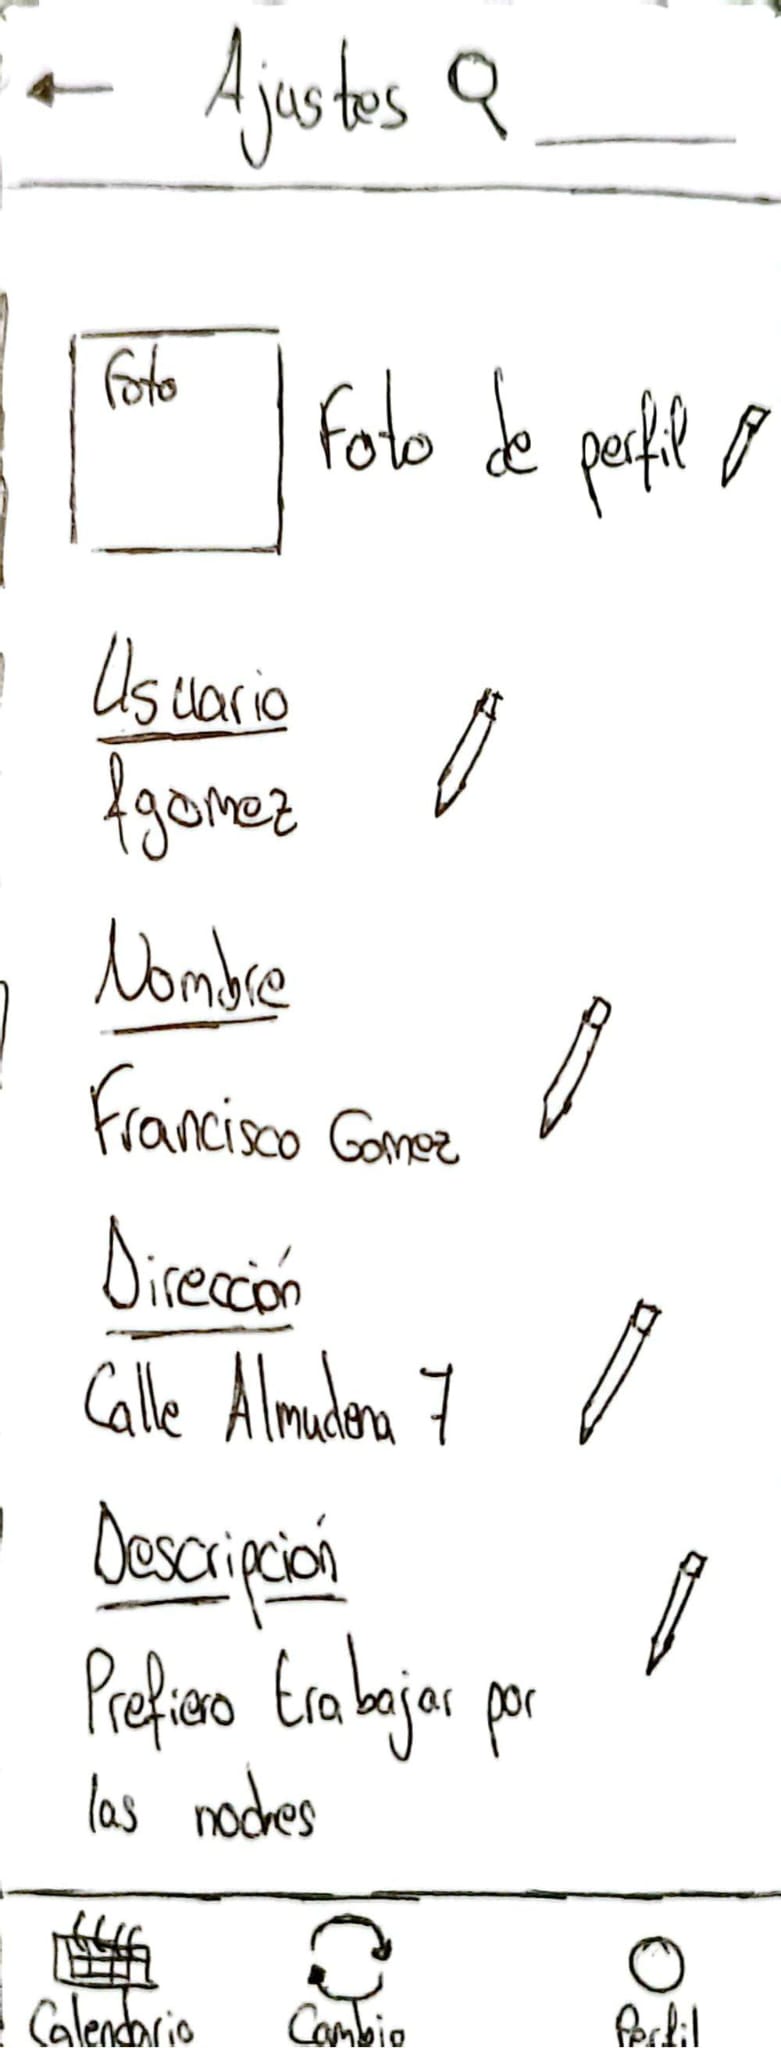 Ajustes
Foto
Foto de perfil
Usuario
fgomez
Nombre
Francisco Gomez
Dirección
Calle Almudena 7
Descripción
Prefiero trabajar por
las noches
Calendario
Cambio
Perfil